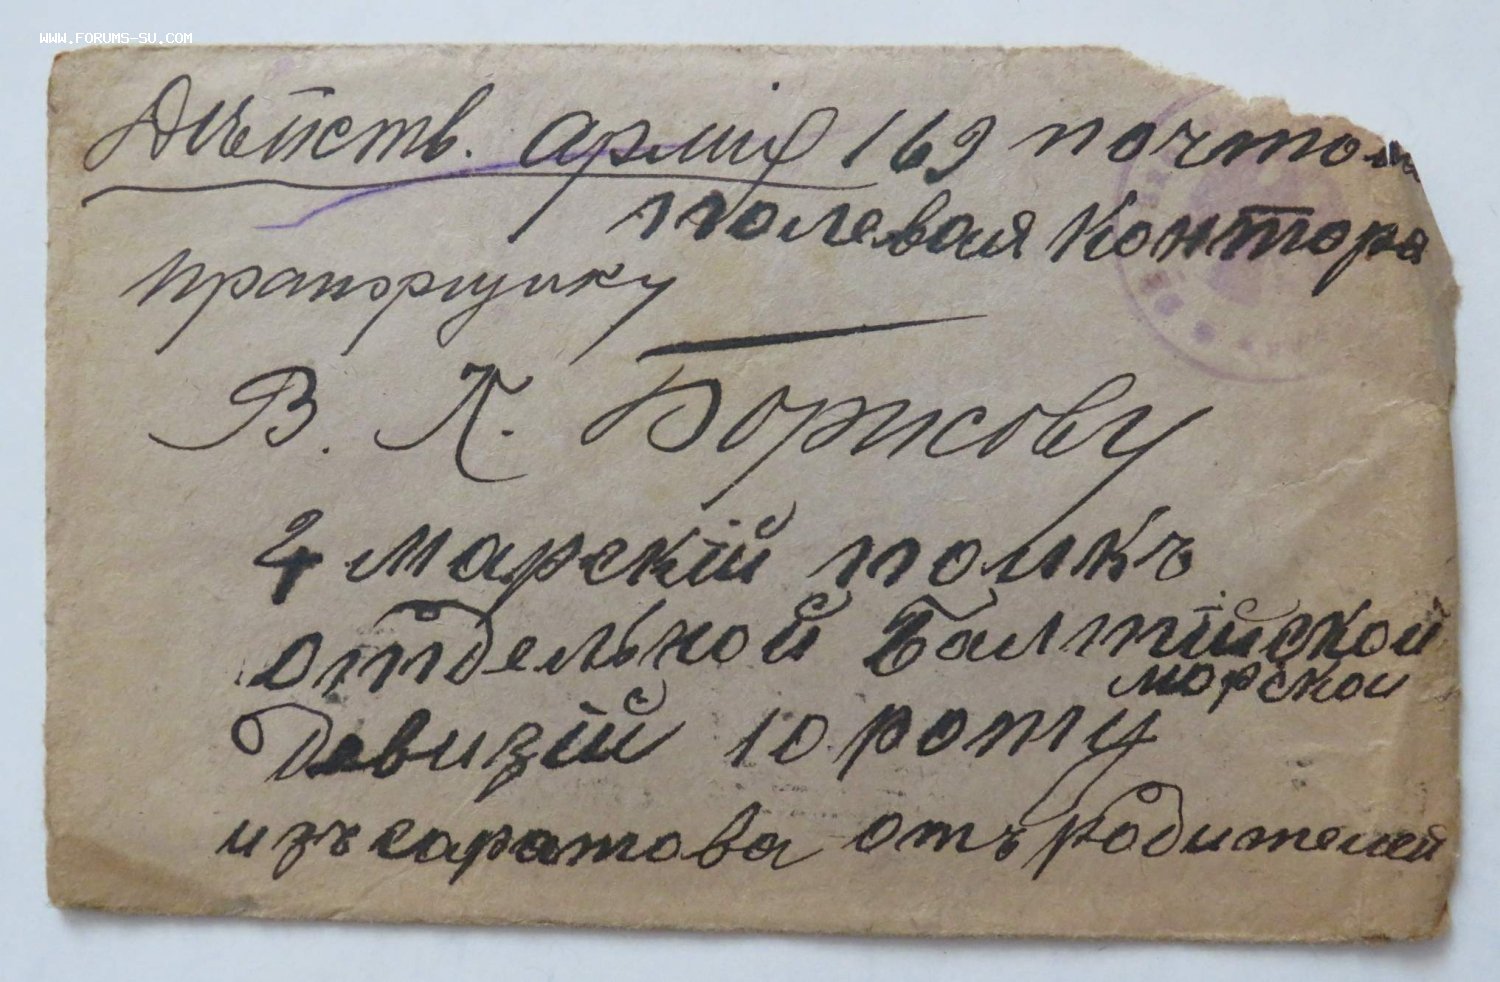 WWW.FORUMS-SU.COM
Дѣйств. армiя 169 почтов
полевая контора
прапорщику
В. К. Боржсову
4 марскiй полкъ
отдельной Балтiйской
морской
девизiй 10 роту
изъ саратова отъ родителей